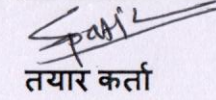 तयार कर्ता